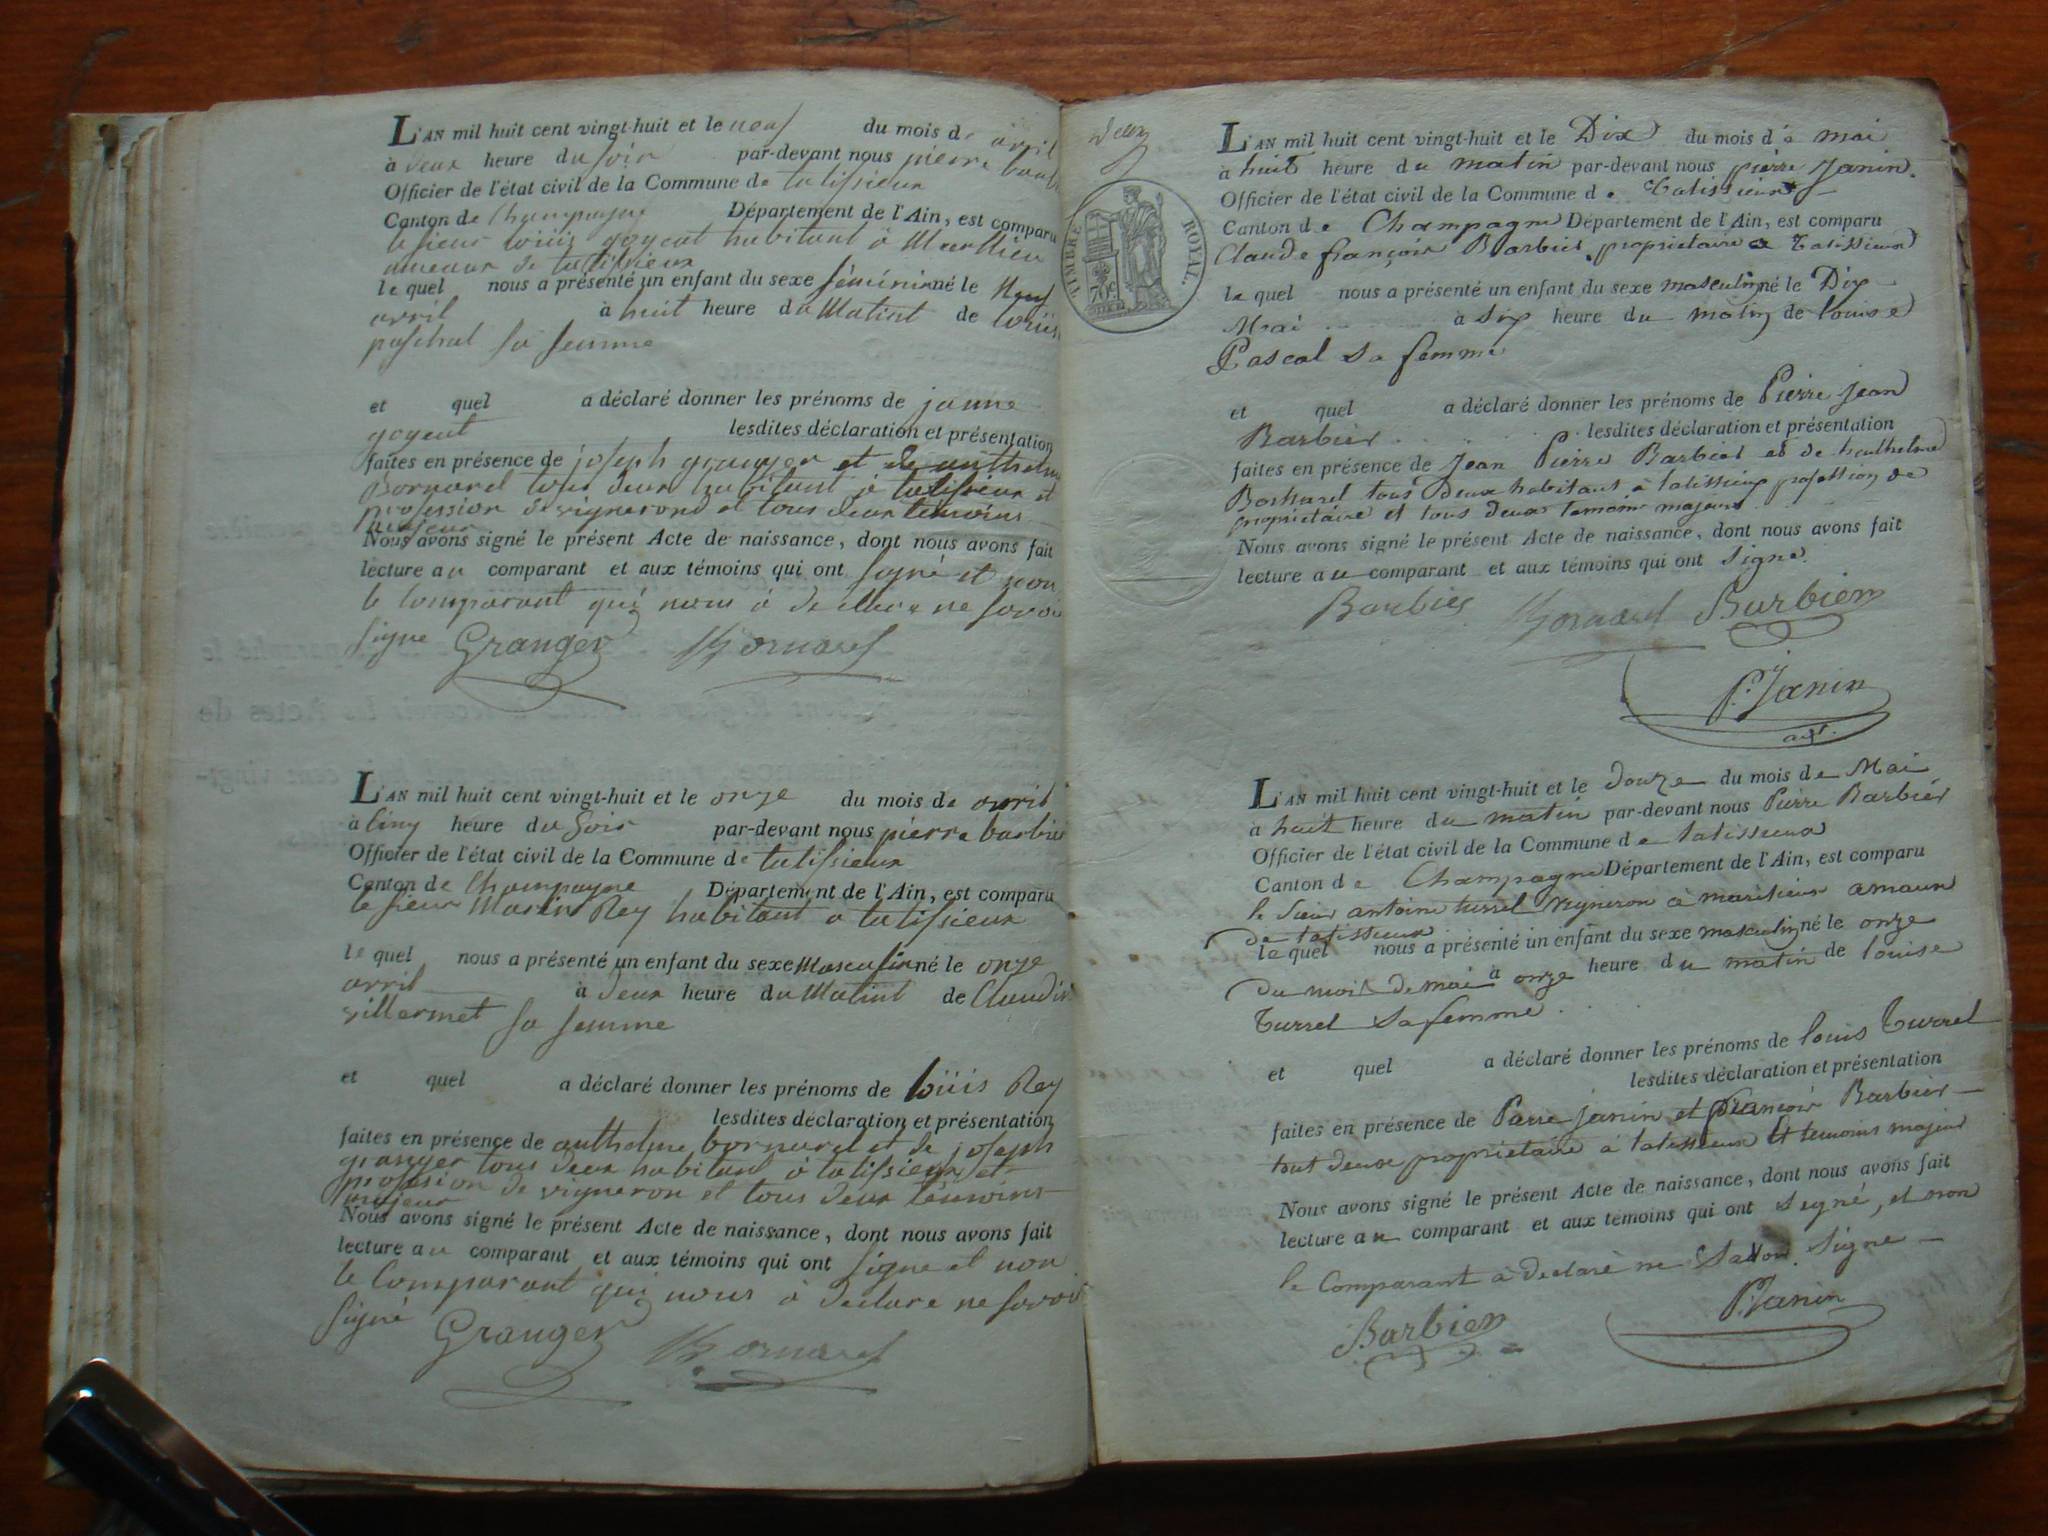 L'AN mil huit cent vingt-huit et le neuf du mois de avril
à deux heure du soir par-devant nous pierre
Officier de l'état civil de la Commune de talissieux
Canton de Champagne Département de l'Ain, est comparu
le sieur loüis goyeut habitant à
ameaux de talissieux
le quel nous a présenté un enfant du sexe féminin né le Neuf
avril à huit heure du Matint de
paschal sa femme
et quel a déclaré donner les prénoms de janne
goyeut lesdites déclaration et présentation
faites en présence de joseph granger et de anthelme
Bornarel tous deux habitant à talissieux et
profession de vignerond et tous deux temoins
majeur
Nous avons signé le présent Acte de naissance, dont nous avons fait
lecture au comparant et aux témoins qui ont signé et non
le comparant qui nous à declare ne savoir
signe Granger Bornarel
L'AN mil huit cent vingt-huit et le onze du mois de avril
à cinq heure du soir par-devant nous pierre barbier
Officier de l'état civil de la Commune de talissieux
Canton de Champagne Département de l'Ain, est comparu
le sieur Marin Rey habitant a talissieux
le quel nous a présenté un enfant du sexe Masculin né le onze
avril à deux heure du Matint de
villermet sa femme
et quel a déclaré donner les prénoms de loüis Rey
lesdites déclaration et présentation
faites en présence de anthelme bornarel et de joseph
granger tous deux habitand à talissieux et
profession de vigneron et tous deux témoins
majeur
Nous avons signé le présent Acte de naissance, dont nous avons fait
lecture au comparant et aux témoins qui ont signe et non
le Comparant qui nous à declare ne savoir
signé Granger Bornarel
TIMBRE ROYAL.
70c
L'AN mil huit cent vingt-huit et le Dix du mois de mai
à huit heure du matin par-devant nous pierre Janin.
Officier de l'état civil de la Commune de Talissieux
Canton de Champagne Département de l'Ain, est comparu
Claude françois Barbier propriétaire a Talissieux
le quel nous a présenté un enfant du sexe masculin né le Dix
Mai à Six heure du matin de louise
Pascal sa femme
et quel a déclaré donner les prénoms de Pierre jean
Barbier lesdites déclaration et présentation
faites en présence de Jean Pierre Barbier et de
tous deux habitant à talissieux profession de
propriétaire et tous deux temoins majeurs
Nous avons signé le présent Acte de naissance, dont nous avons fait
lecture au comparant et aux témoins qui ont signe.
Barbier Bornarel Barbier
P. Janin
adjt.
L'AN mil huit cent vingt-huit et le douze du mois de Mai
à huit heure du matin par-devant nous Pierre Barbier
Officier de l'état civil de la Commune de talissieux
Canton de Champagne Département de l'Ain, est comparu
le sieur antoine turrel vigneron à amaux
de talissieux
le quel nous a présenté un enfant du sexe masculin né le onze
du mois de mai à onze heure du matin de louise
Turrel Sa femme
et quel a déclaré donner les prénoms de louis Turrel
lesdites déclaration et présentation
faites en présence de Pierre janin et françois Barbier
tout deux propriétaire à talissieux et temoins majeur
Nous avons signé le présent Acte de naissance, dont nous avons fait
lecture au comparant et aux témoins qui ont signé, et non
le Comparant à declaré ne savoir signe
Barbier P. Janin